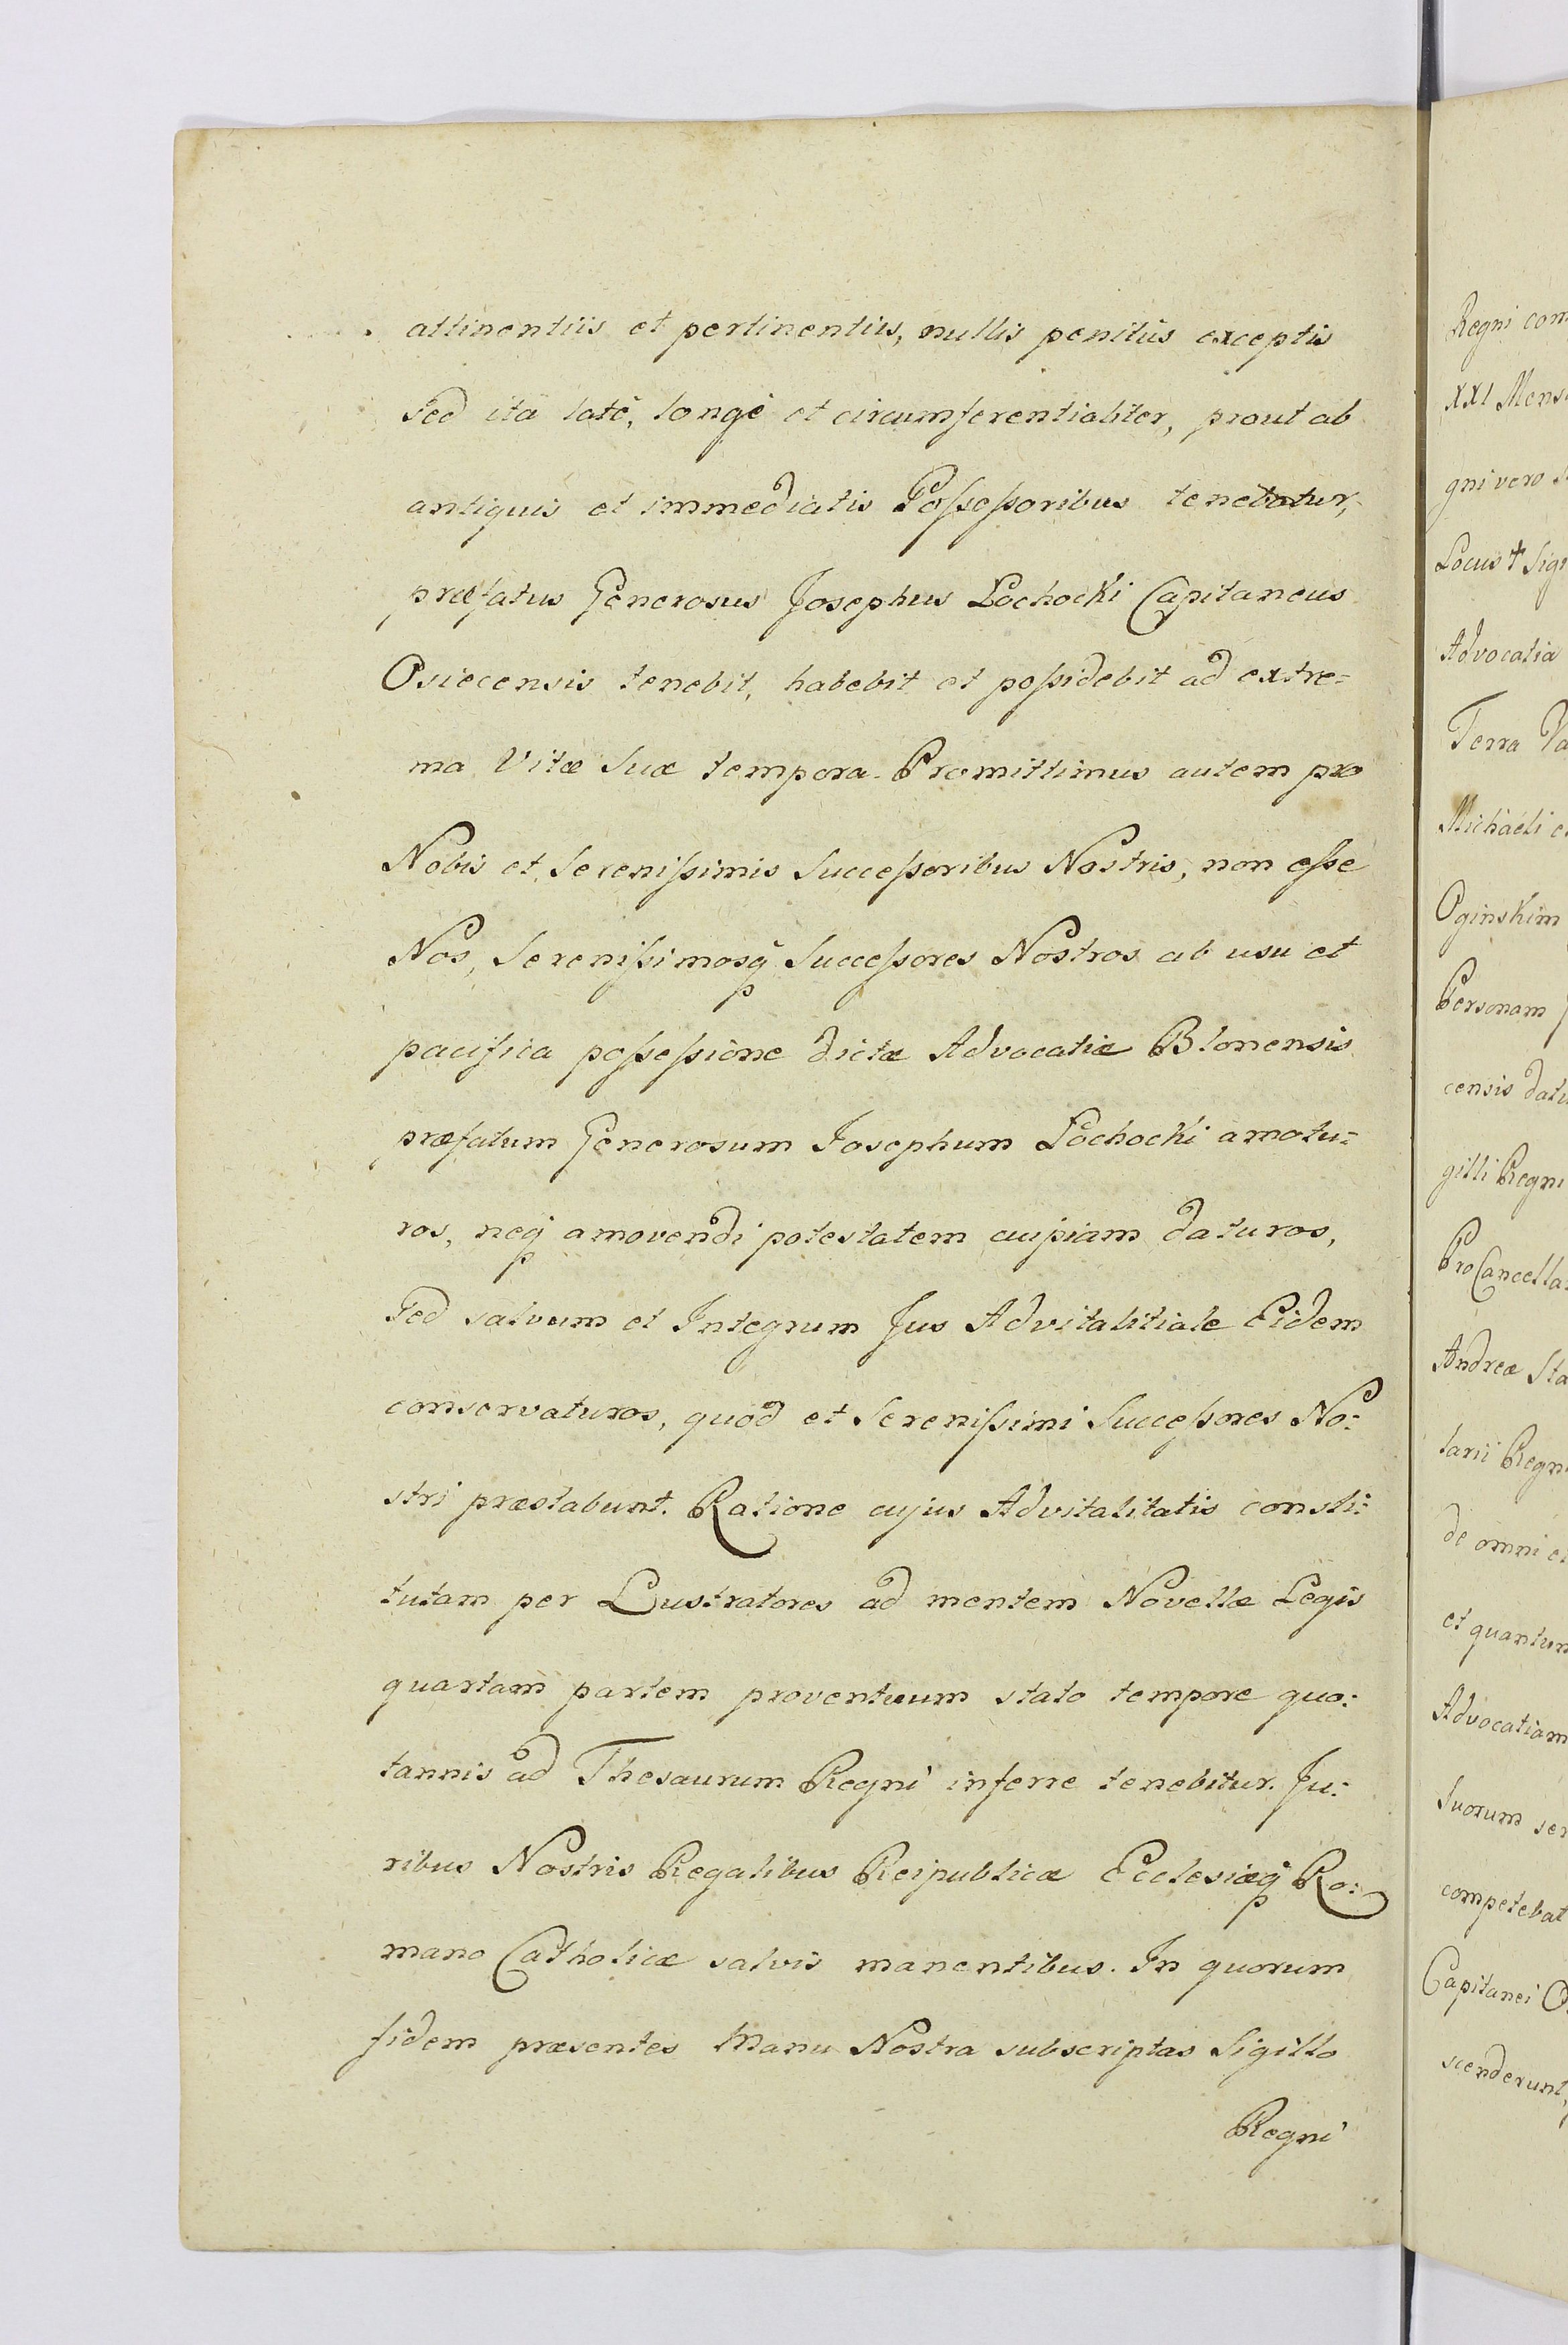 attinentiis et pertinentiis, nullis penitus exceptis
sed ita latè, longè et circumferentialiter, prout ab
antiquis et immediatis Poſseſsoribus tenebatur,
præfatus Generosus Josephus Łochocki Capitaneus
Osiecensis tenebit, habebit et poſsidebit ad extre=
ma Vitæ Suæ tempora. Promittimus autem pro
Nobis et Sereniſsimis Succeſsoribus Nostris, non eſse
Nos, Sereniſsimosq̃ Succeſsores Nostros ab usu et
pacifica poſseſsione dictæ Advocatiæ Blonensis
præfatum Generosum Josephum Łochocki amotu=
ros, neq̃ amovendi potestatem cuipiam daturos,
sed salvum et Integrum Jus Advitalitiale Eidem
conservaturos, quod et Sereniſsimi Succeſsores No=
stri præstabunt. Ratione cujus Advitalitatis consti=
tutam per Lustratores ad mentem Novellæ Legis
quartam partem proventuum stato tempore quo=
tannis ad Thesaurum Regni inferre tenebitur. Ju=
ribus Nostris Regalibus Reipublicæ Ecclesiæq̃ Ro=
mano Catholicæ salvis manentibus. In quorum
fidem præsentes Manu Nostra subscriptas Sigillo
Regni
Regni com
XXI Mens
gni vero s
Locus + Sigi
Advocatia
Terra Va
Michaeli
Oginskim
Personam
censis dat
gilli Regni
ProCancella
Andreæ Sta
tarii Regn
de omni e
et quantum
Advocatiam
Suorum ser
competebat
Capitanei O
scenderunt,